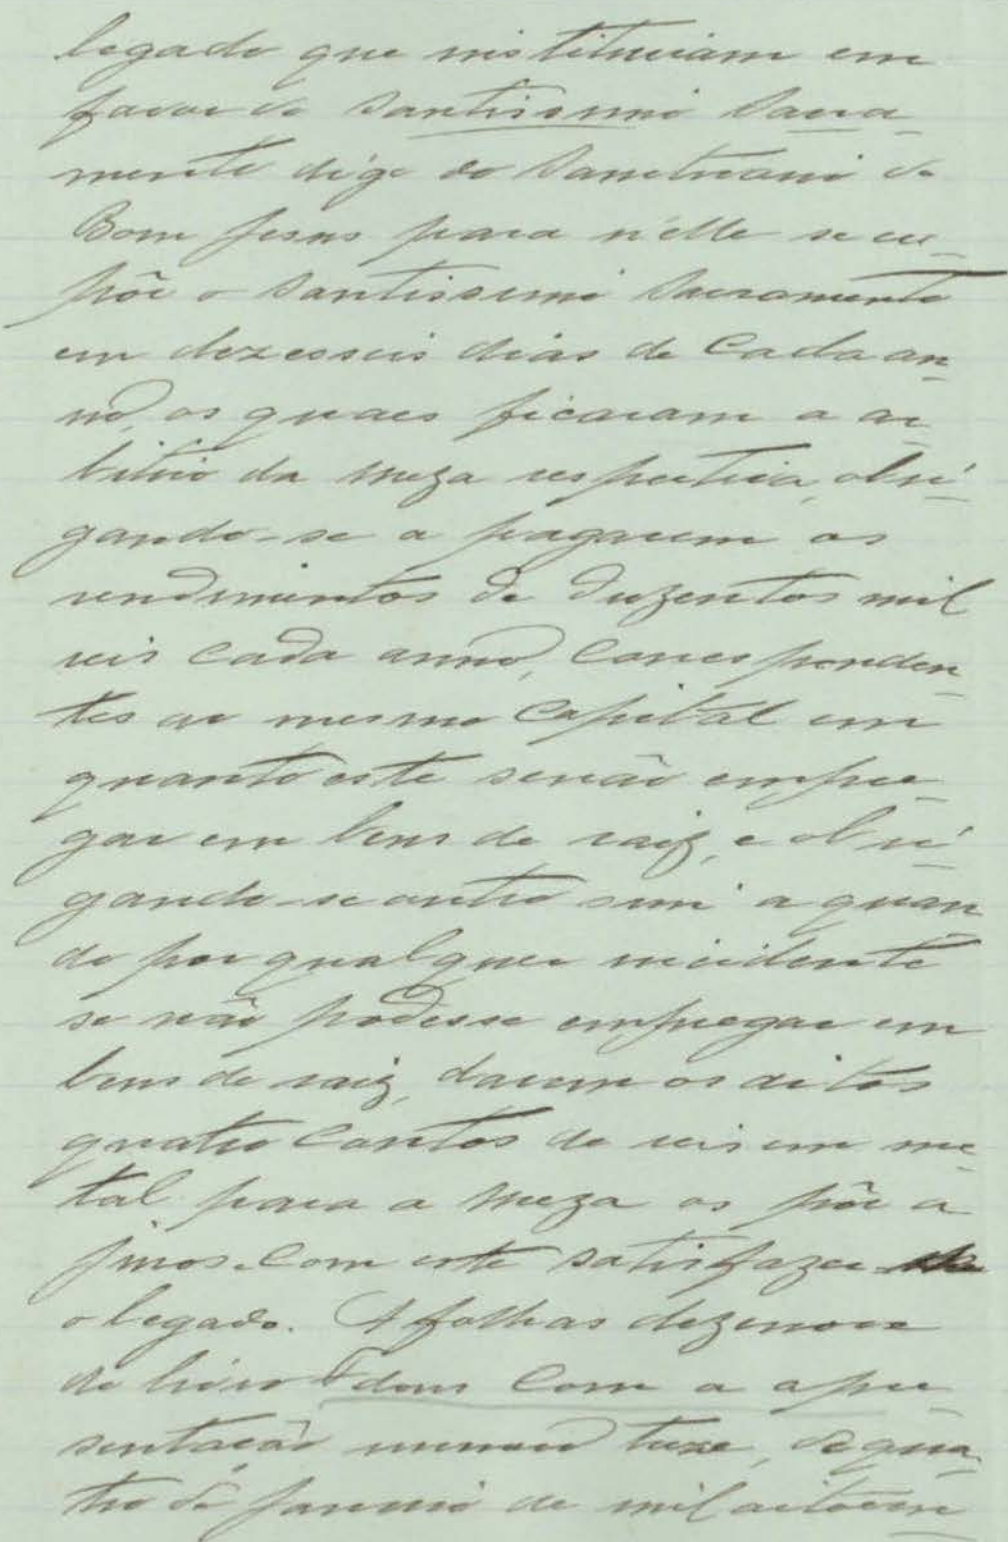 legado que instituiam em
favor do Santissimo Sacra-
mento digo do Sanctuario do
Bom Jesus para n'elle se ex-
pôr o Santissimo Sacramento
em dezesseis dias de cada an-
no, os quaes ficaram a ar-
bitrio da meza respectiva, obri-
gando-se a pagarem os
rendimentos de duzentos mil
reis cada anno, correspenden-
tes ao mesmo capital em
quanto este senão empre-
gar em bens de raiz, e obri-
gando-se outro sim a quan-
do por qualquer incidente
se não podesse empregar em
bens de raiz, darem os ditos
quatro contos de reis em me-
tal para a meza os pôr a
juros e com este satisfazer
o legado. A folhas dezenove
do livro F dous com a apre-
sentação numero treze, de qua-
tro de Janeiro de mil oitocen-